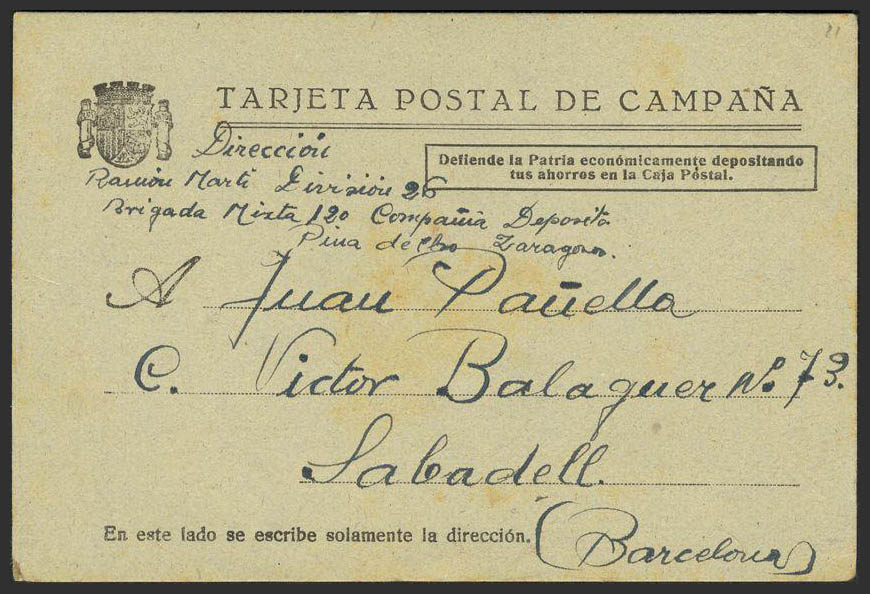 TARJETA POSTAL DE CAMPAÑA
Defiende la Patria económicamente depositando
tus ahorros en la Caja Postal.
Dirección
Ramón Martí División 26
Brigada Mixta 120 Compañia Deposito
Pina de Ebro Zaragoza.
A Juan Pañella
C. Victor Balaguer Nº 73.
Sabadell.
En este lado se escribe solamente la dirección.
(Barcelona)